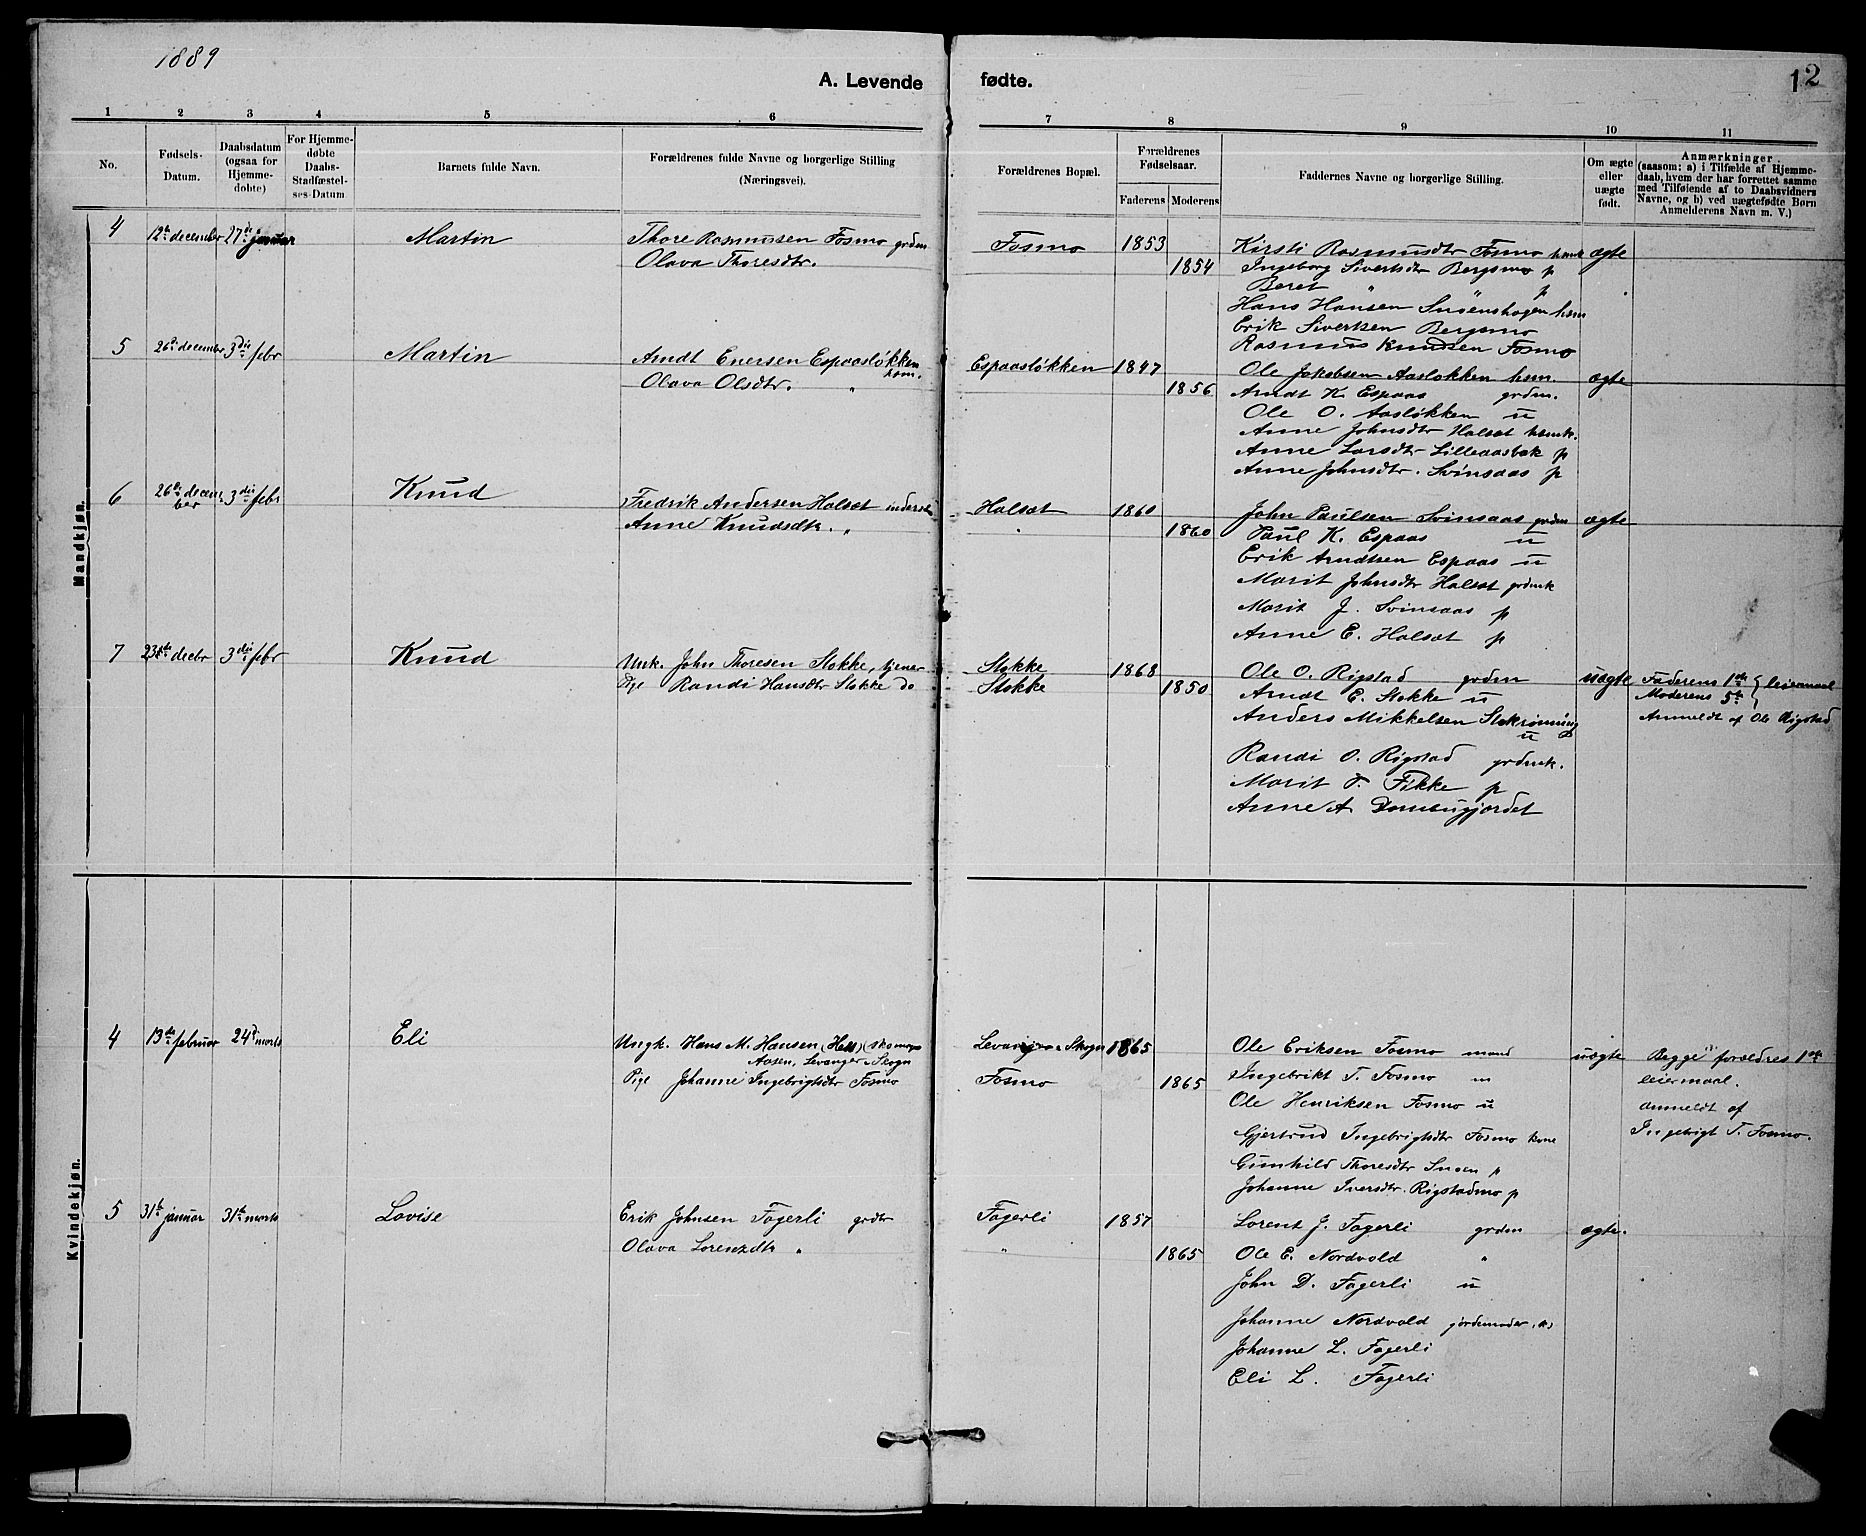 1889
A. Levende fødte.
12
1 2 3 4 5 6 7 8 9 10 11
No.
Fødsels-
Datum.
Daabsdatum
(ogsaa for
Hjemme-
døbte)
For Hjemme-
døbte
Daabs-
Stadfæstel-
ses Datum
Barnets fulde Navn.
Forældrenes fulde Navne og borgerlige Stilling
(Næringsvei).
Forældrenes Bopæl.
Forældrenes
Fødselsaar.
Faderens Moderens
Faddernes Navne og borgerlige Stilling.
Om ægte
eller
uægte
født.
Anmærkninger
(saasom: a) i Tilfælde af Hjemme-
daab, hvem der har forrettet samme
med Tilføiende af to Daabsvidners
Navne, og b) ved uægtefødte Børn
Anmelderens Navn m. V.)
Mandkjøn.
4 12te december 27de januar Martin Thore Rasmussen Fosmo grdm Fosmo 1853 Kirsti Rasmusdtr Fosmo hsmk ægte
Olava Thoresdtr. 1854 Ingeborg Sivertsdtr Bergsmo p
Beret " p
Hans Hansen Snoenshagen hsm
Erik Sivertsen Bergsmo
Rasmus Knudsen Fosmo
5 26de december 3die febr Martin Arndt Enersen Espaasløkken hsm. Espaasløkken 1847 Ole Jakobsen Aasløkken hsm. ægte
Olava Olsdtr. " 1856 Arndt K. Espaas grdm.
Ole O. Aasløkken u
Anne Johnsdtr Halset hsmk.
Anne Larsdtr Lilleaasbak p
Anne Johnsdtr. Svinsaas p
6 26de decem- 3die febr Knud Fredrik Andersen Halset inderst Halset 1860 John Paulsen Svinsaas grdm ægte
ber Anne Knudsdtr. " " 1860 Paul K. Espaas u
Erik Arndtsen Espaas u
Marit Johnsdtr Halset grdmk
Marit J. Svinsaas p
Anne E. Halset p
7 23de decbr 3die febr Knud Unk. John Thoresen Stokke, tjener Stokke 1868 Ole O. Rigstad grdm uægte Faderens 1ste } leiermaal
Pige Randi Hansdtr Stokke do Stokke 1850 Arndt E. Stokke u Moderens 5te
Anders Mikkelsen Stokrønning u Anmeldt af Ole Rigstad
Randi O. Rigstad grdmk.
Marit T. Fikke p
Anne A.
Kvindekjøn.
4 13de februar 24de marts Eli Ungk. Hans M. Hansen (Hell) Levanger Skogn 1865 Ole Eriksen Fosmo mand uægte Begge forældres 1ste
Aasen, Levanger Skogn
Pige Johanne Ingebrigtsdtr Fosmo Fosmo 1865 Ingebrikt T. Fosmo m leiermaal.
Ole Henriksen Fosmo u anmeldt af
Gjertrud Ingebrigtsdtr Fosmo kone Ingebrigt T. Fosmo.
Gunhild Thoresdtr Snoen p
Johanne Iversdtr. Rigstadmo p
5 31te januar 31te marts Lovise Erik Johnsen Fagerli grdbr Fagerli 1857 Lorents J. Fagerli grdm ægte.
Olava Lorenzdtr " " 1865 Ole E. Nordvold "
John D. Fagerli u
Johanne Nordvold jordemoder
Johanne L. Fagerli
Eli L. Fagerli